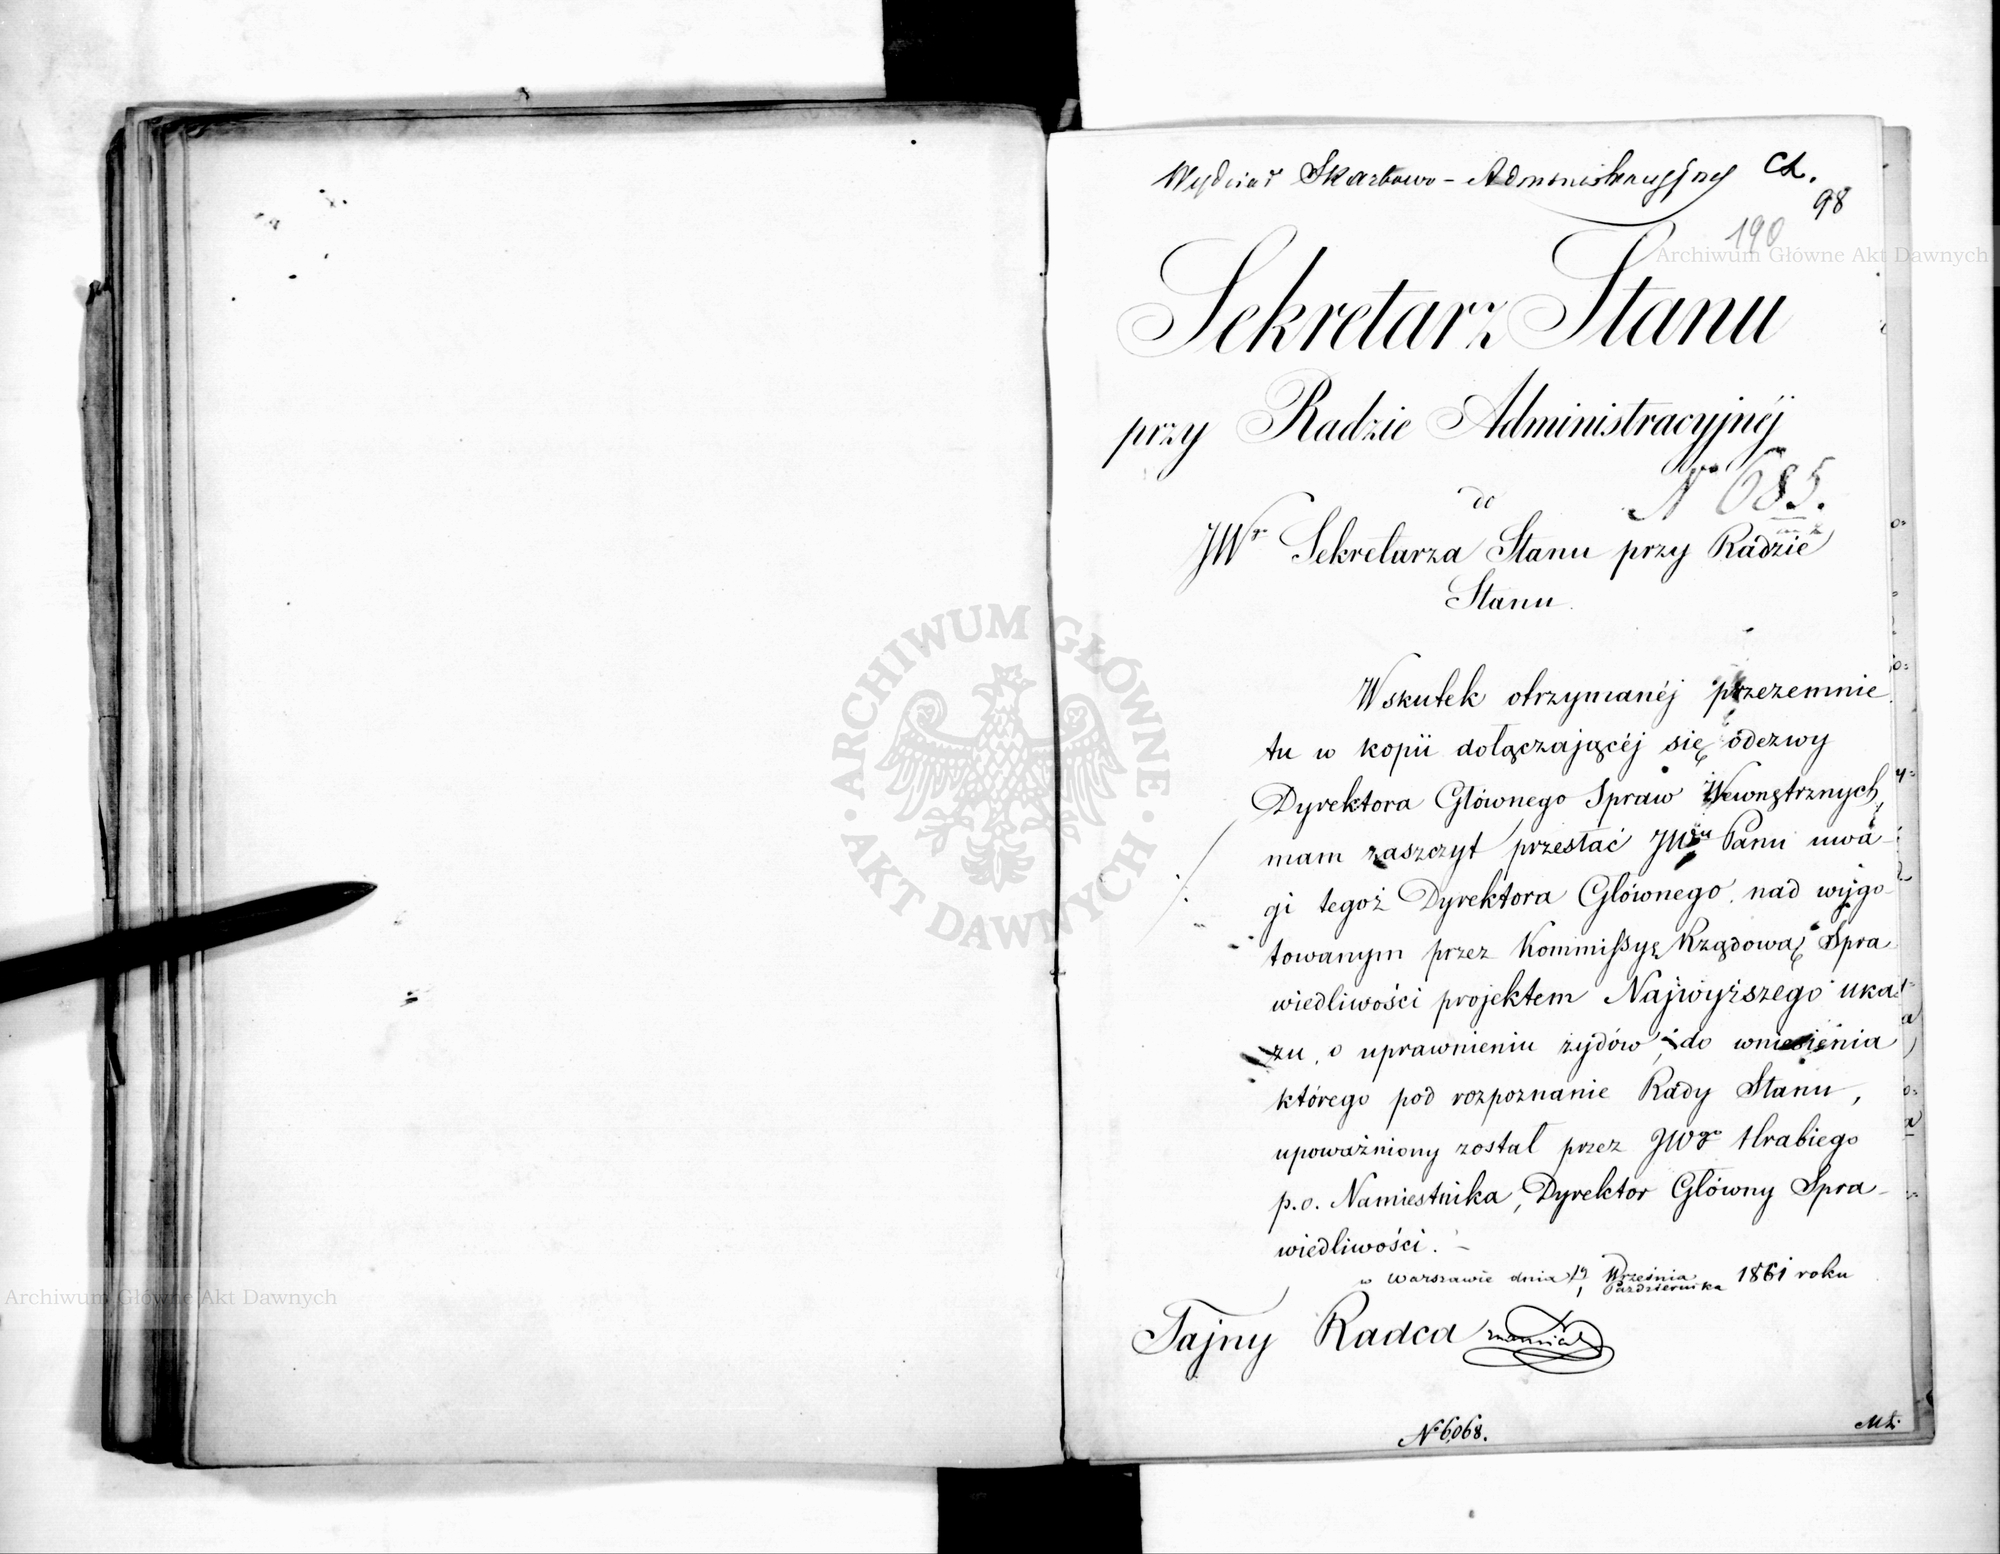 Wydział Skarbowo-Administracyjny
98
190
Sekretarz Stanu
przy Radzie Administracyjnéj
Nº 685.
do
JWº Sekretarza Stanu przy Radzie
Stanu.
Wskutek otrzymanéj przezemnie
tu w kopii dołączającéj się odezwy
Dyrektora Głównego Spraw Wewnętrznych,
mam zaszczyt przesłać JWmu Panu uwa-
gi tegoż Dyrektora Głównego nad wygo-
towanym przez Kommissyę Rządową Spra-
wiedliwości projektem Najwyższego uka-
zu, o uprawnieniu żydów, do wniesienia
którego pod rozpoznanie Rady Stanu,
upoważniony został przez JWgo Hrabiego
p.o. Namiestnika, Dyrektor Główny Spra-
wiedliwości.
w Warszawie dnia 19/1 Września/Października 1861 roku
Tajny Radca
Nº 6,068.
Archiwum Główne Akt Dawnych
ARCHIWUM GŁÓWNE · AKT DAWNYCH ·
Archiwum Główne Akt Dawnych